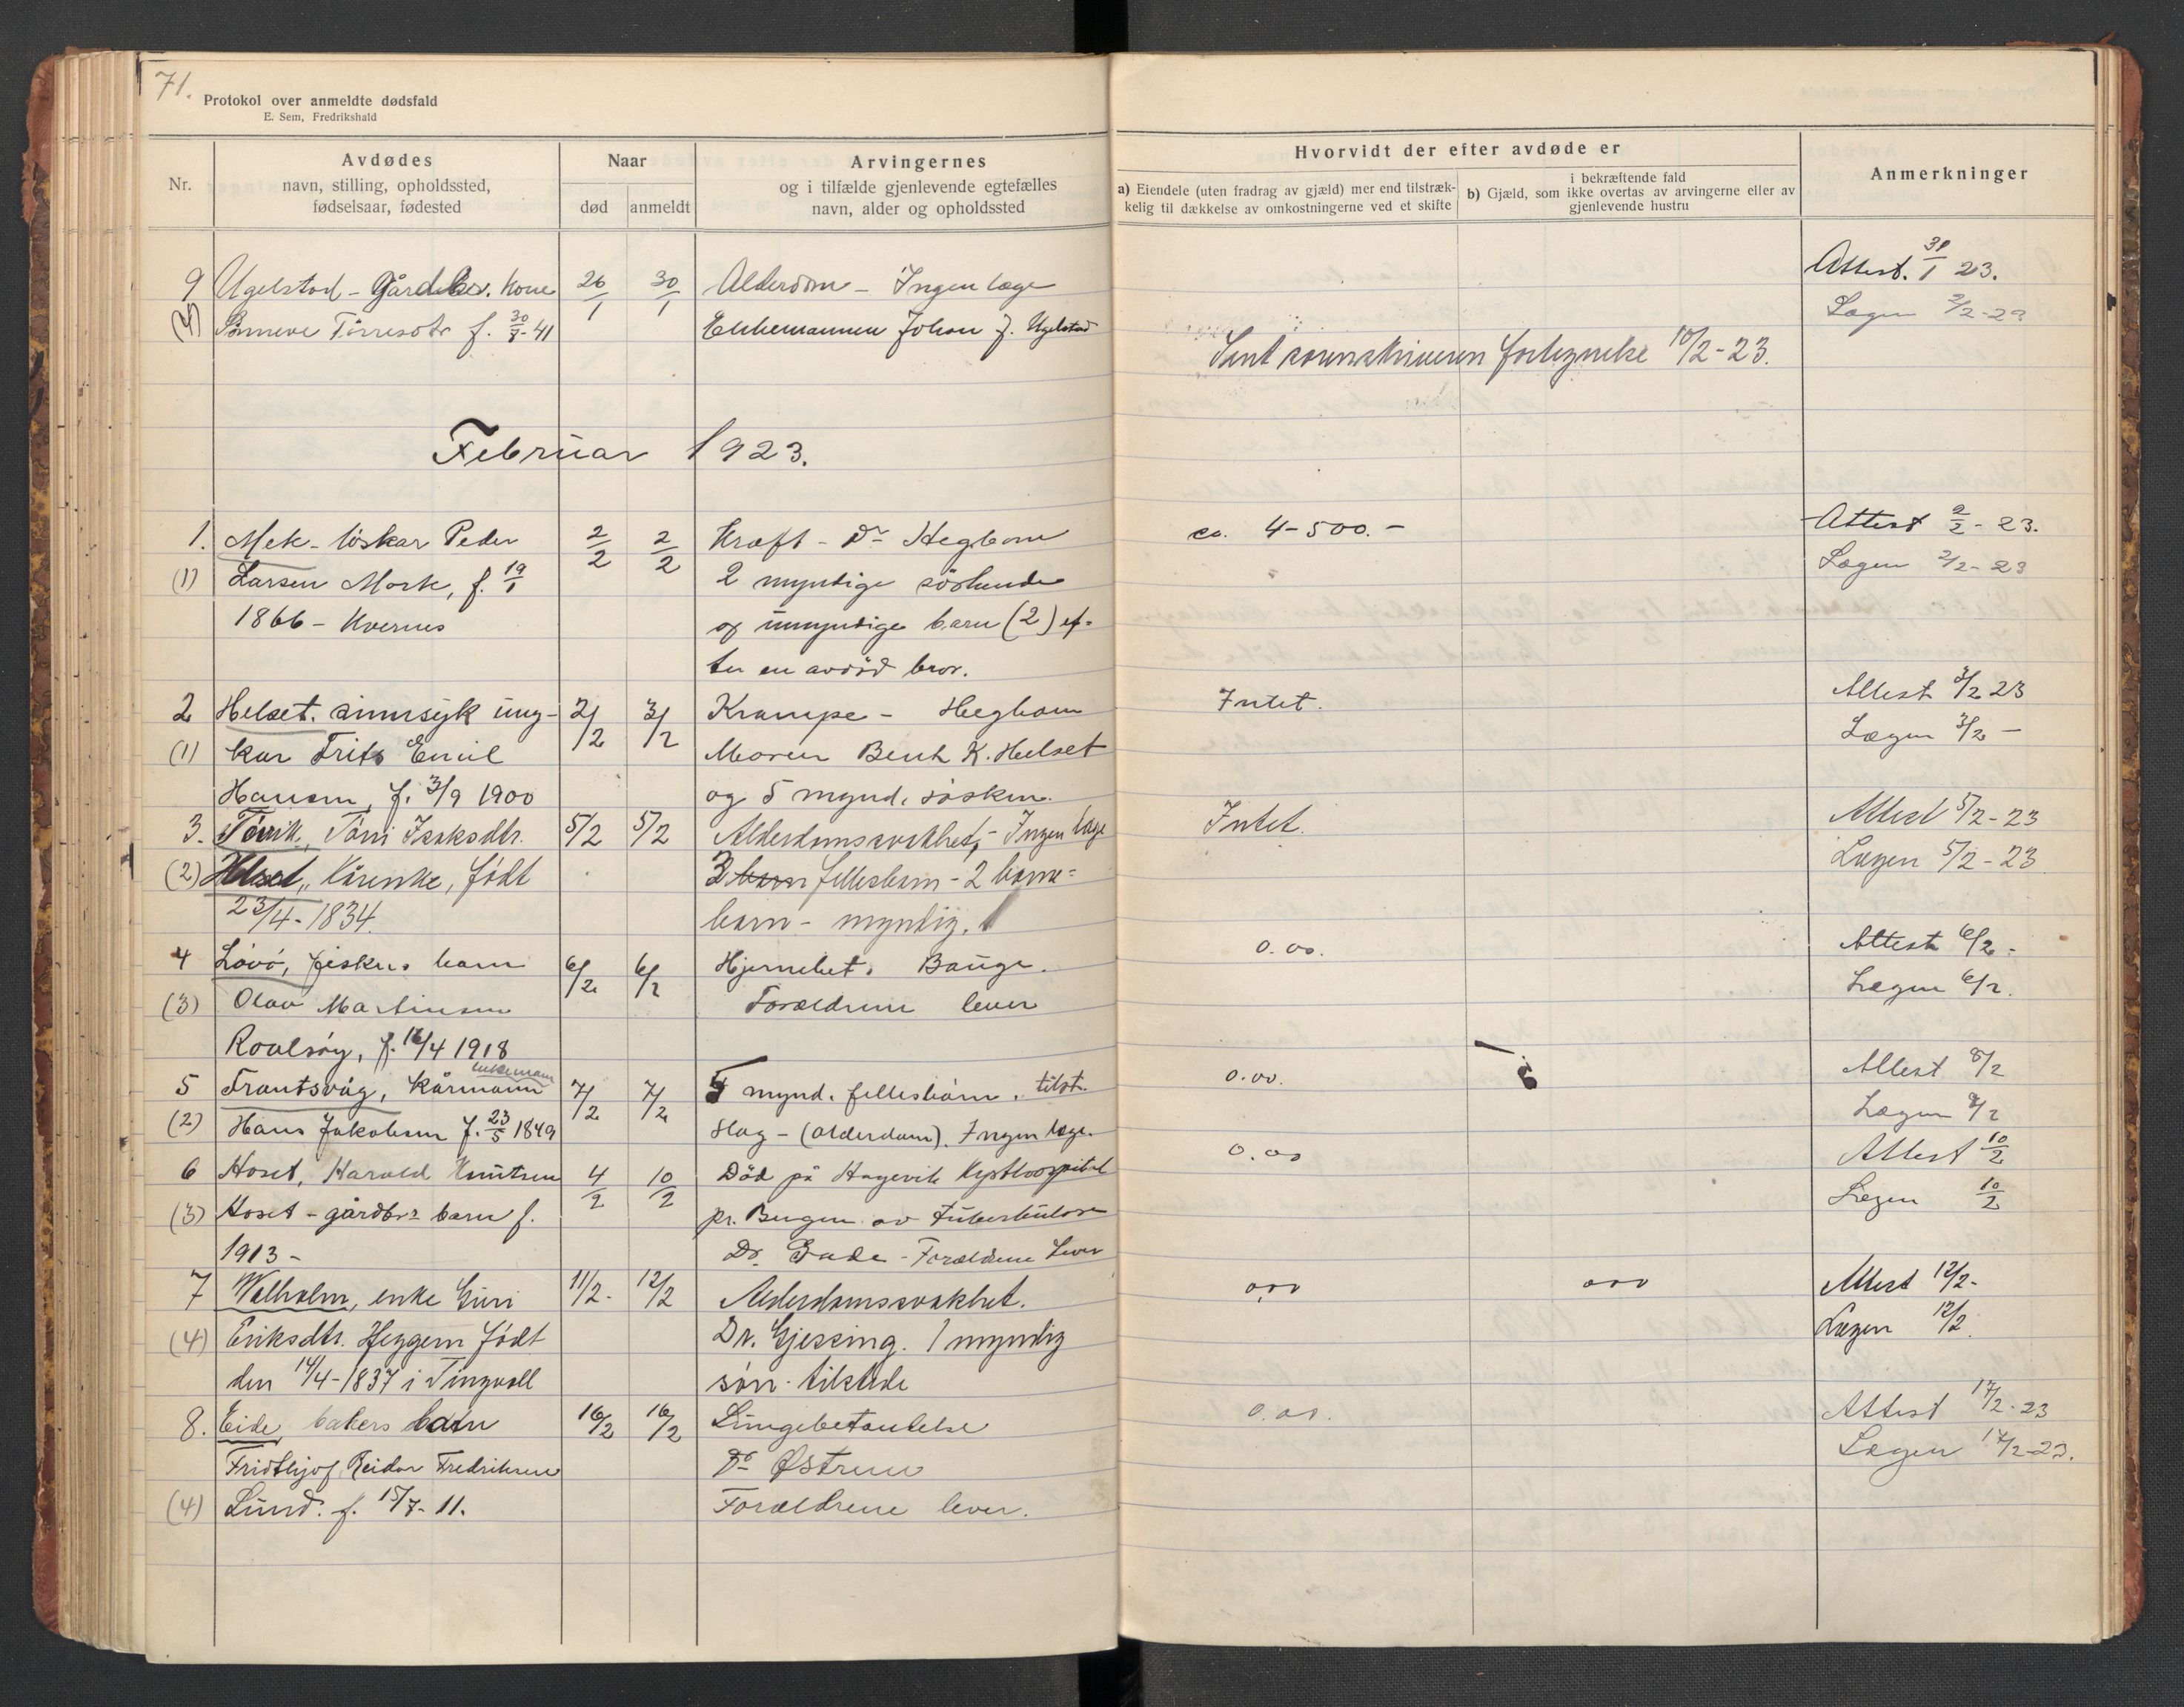 71.
Protokol over anmeldte dødsfald
E. Sem, Fredrikshald
Nr.
Avdødes
navn, stilling, opholdssted,
fødselsaar, fødested
Naar
død
anmeldt
Arvingernes
og i tilfælde gjenlevende egtefælles
navn, alder og opholdssted
Hvorvidt der efter avdøde er
a) Eiendele (uten fradrag av gjæld) mer end tilstræk-
kelig til dækkelse av omkostningerne ved et skifte
i bekræftende fald
b) Gjæld, som ikke overtas av arvingerne eller av
gjenlevende hustru
Anmerkninger
9 Ugelstad - Gårdbr. kone 26/1 30/1 Alderdom - Ingen læge Attest. 31/1 23.
Sønneve Tørresdtr f. 30/7-41 Enkemannen Johan J. Ugelstad Lægen 2/2-23
Sent sorenskriveren fortegnelse 10/2-23.
Februar 1923.
1. Mek-løskar Peder 2/2 2/2 Kræft - Dr Hegbom ca. 4-500.- Attest 2/2-23.
(1) Larsen Mork, f. 19/1 2 myndige søskende Lægen 2/2-23
1866 - Kvernes og umyndige barn (2) ef-
ter en avdød bror.
2 Helset. sinnsyk ung- 2/2 3/2 Krampe - Hegbom Intet. Attest 3/2 23
(1) kar Frits Emil Moren Berit K. Helset Lægen 3/2 -
Hansen, f. 3/9 1900 og 5 mynd. søsken.
3. Tørvik, Tørri Isaksdtr. 5/2 5/2 Alderdomssvakhet, - Ingen læge Intet. Attest 5/2-23
(2) Helset, Kårenke, født 3 barn fellesbarn - 2 barne- Lægen 5/2-23
23/4-1834. barn - myndig.
4 Løvø, fiskers barn 6/2 6/2 Hjernebet. Bauge. 0.00. Attest 6/2-
(3) Olav Martinsen Forældrene lever Lægen 6/2.
Roalsøy, f. 16/4 1918
enkemann
5 Frantsvåg, kårmann 7/2 7/2 5 mynd. fellesbarn. tilst. 0.00. Attest 8/2
(2) Hans Jakobsen f. 23/5 1849 Slag - (alderdom). Ingen læge. Lægen 8/2
6 Hoset, Harald Knutsen 4/2 10/2 Död på Hagevik Kysthospital 0.00 Attest 10/2
(3) Hoset - gårdbrs barn f. pr. Bergen av Tuberkulose Lægen 10/2
1913 - Dr. Gade - Forældrene Lever
7 Walholm, enke Guri 11/2- 12/2 Alderdomssvakhet. 0,00 000 Attest 12/2-
(4) Eriksdtr. Heggem født Dr. Gjessing. 1 myndig Lægen 12/2.
den 14/4-1837 i Tingvoll søn - tilstede
8. Eide, bakers barn 16/2 16/2 Lungebetændelse 0.00. Attest 17/2-23
Fridthjof Reidar Fredriksen Dr Østrem Lægen 17/2-23.
(4) Lund. f. 15/7-11. Forældrene lever.